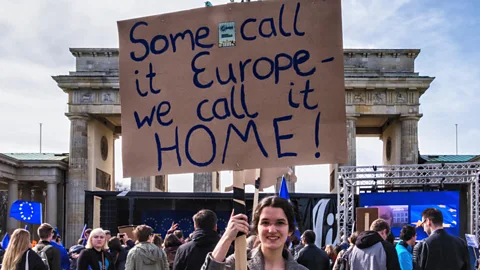 Some call
it Europe-
we call it
HOME!